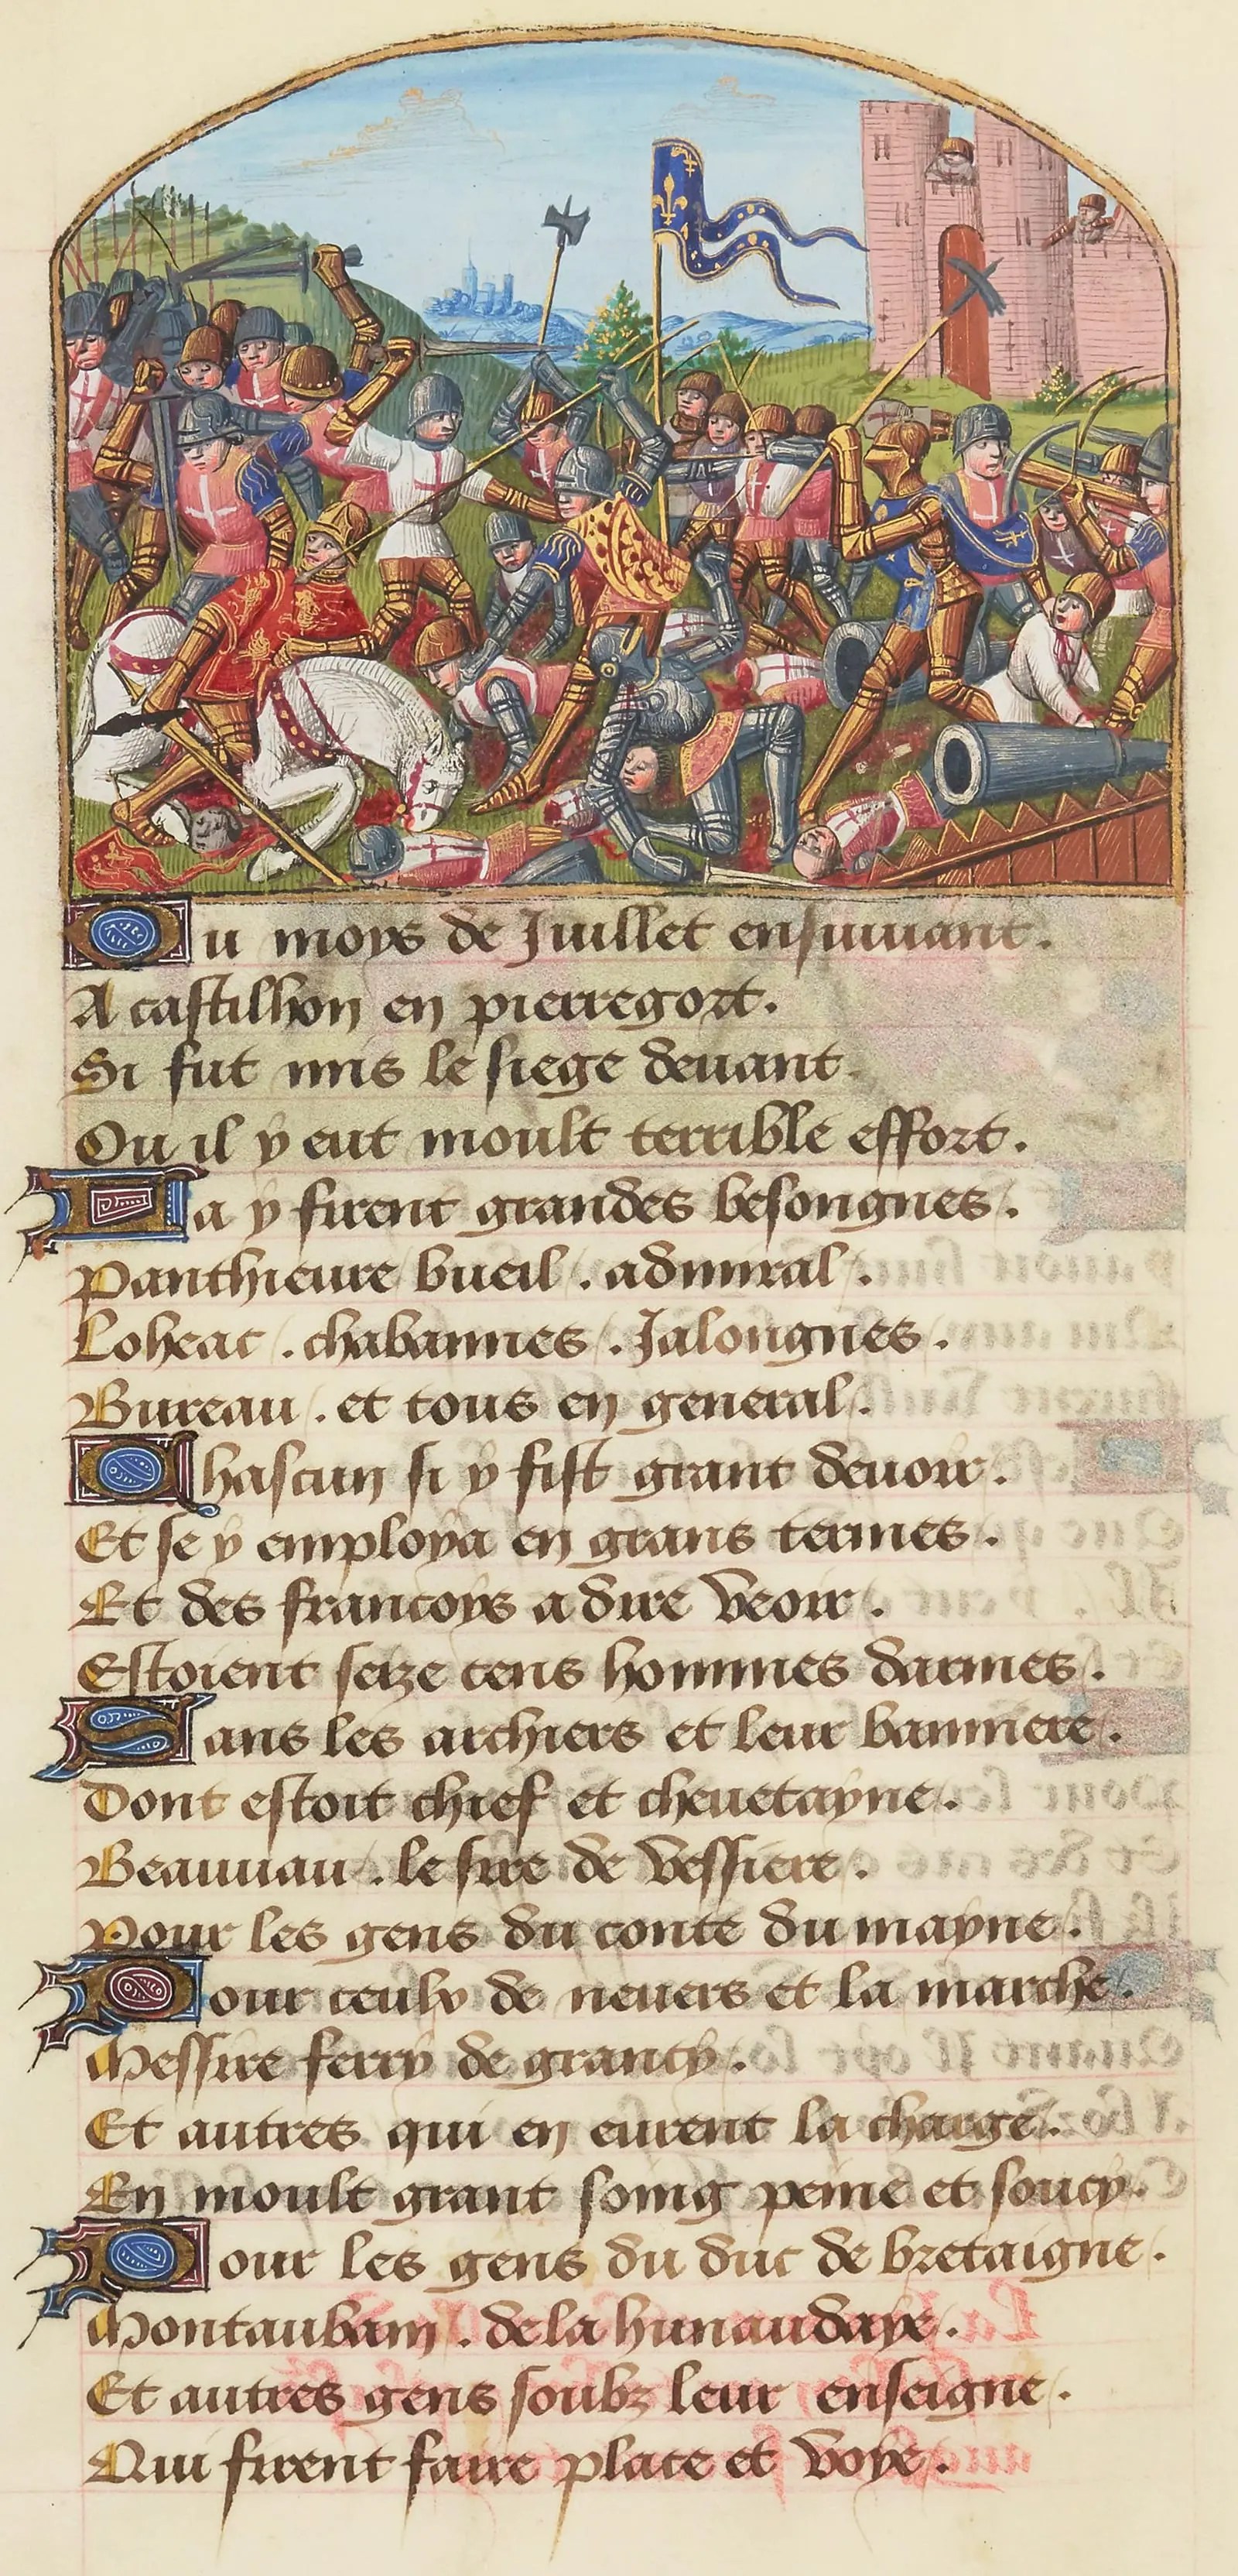 Ou moys de Juillet ensuiuant.
A castilhon en pierregort.
Si fut mis le siege deuant
Ou il y eut moult terrible effort.
La y firent grandes besongnes.
Panthieure bueil. admiral.
Loheac. chabannes. Jalongnes.
Bureau. et tous en general.
Chascun si y fist grant deuoir.
Et se y employa en grans termes.
Et des francoys a dire veoir.
Estoient seize cens hommes darmes.
Sans les archiers et leur banniere.
Dont estoit chief et cheuetayne.
Beauuau. le sire de bessiere.
Pour les gens du conte du mayne.
Pour ceulx de neuers et la marche.
Messire ferry de grancy.
Et autres qui en eurent la charge.
En moult grant soing peine et soucy.
Pour les gens du duc de bretaigne.
Montaubam. de la hunaudaye.
Et autres gens soubz leur enseigne.
Qui firent faire place et voye.